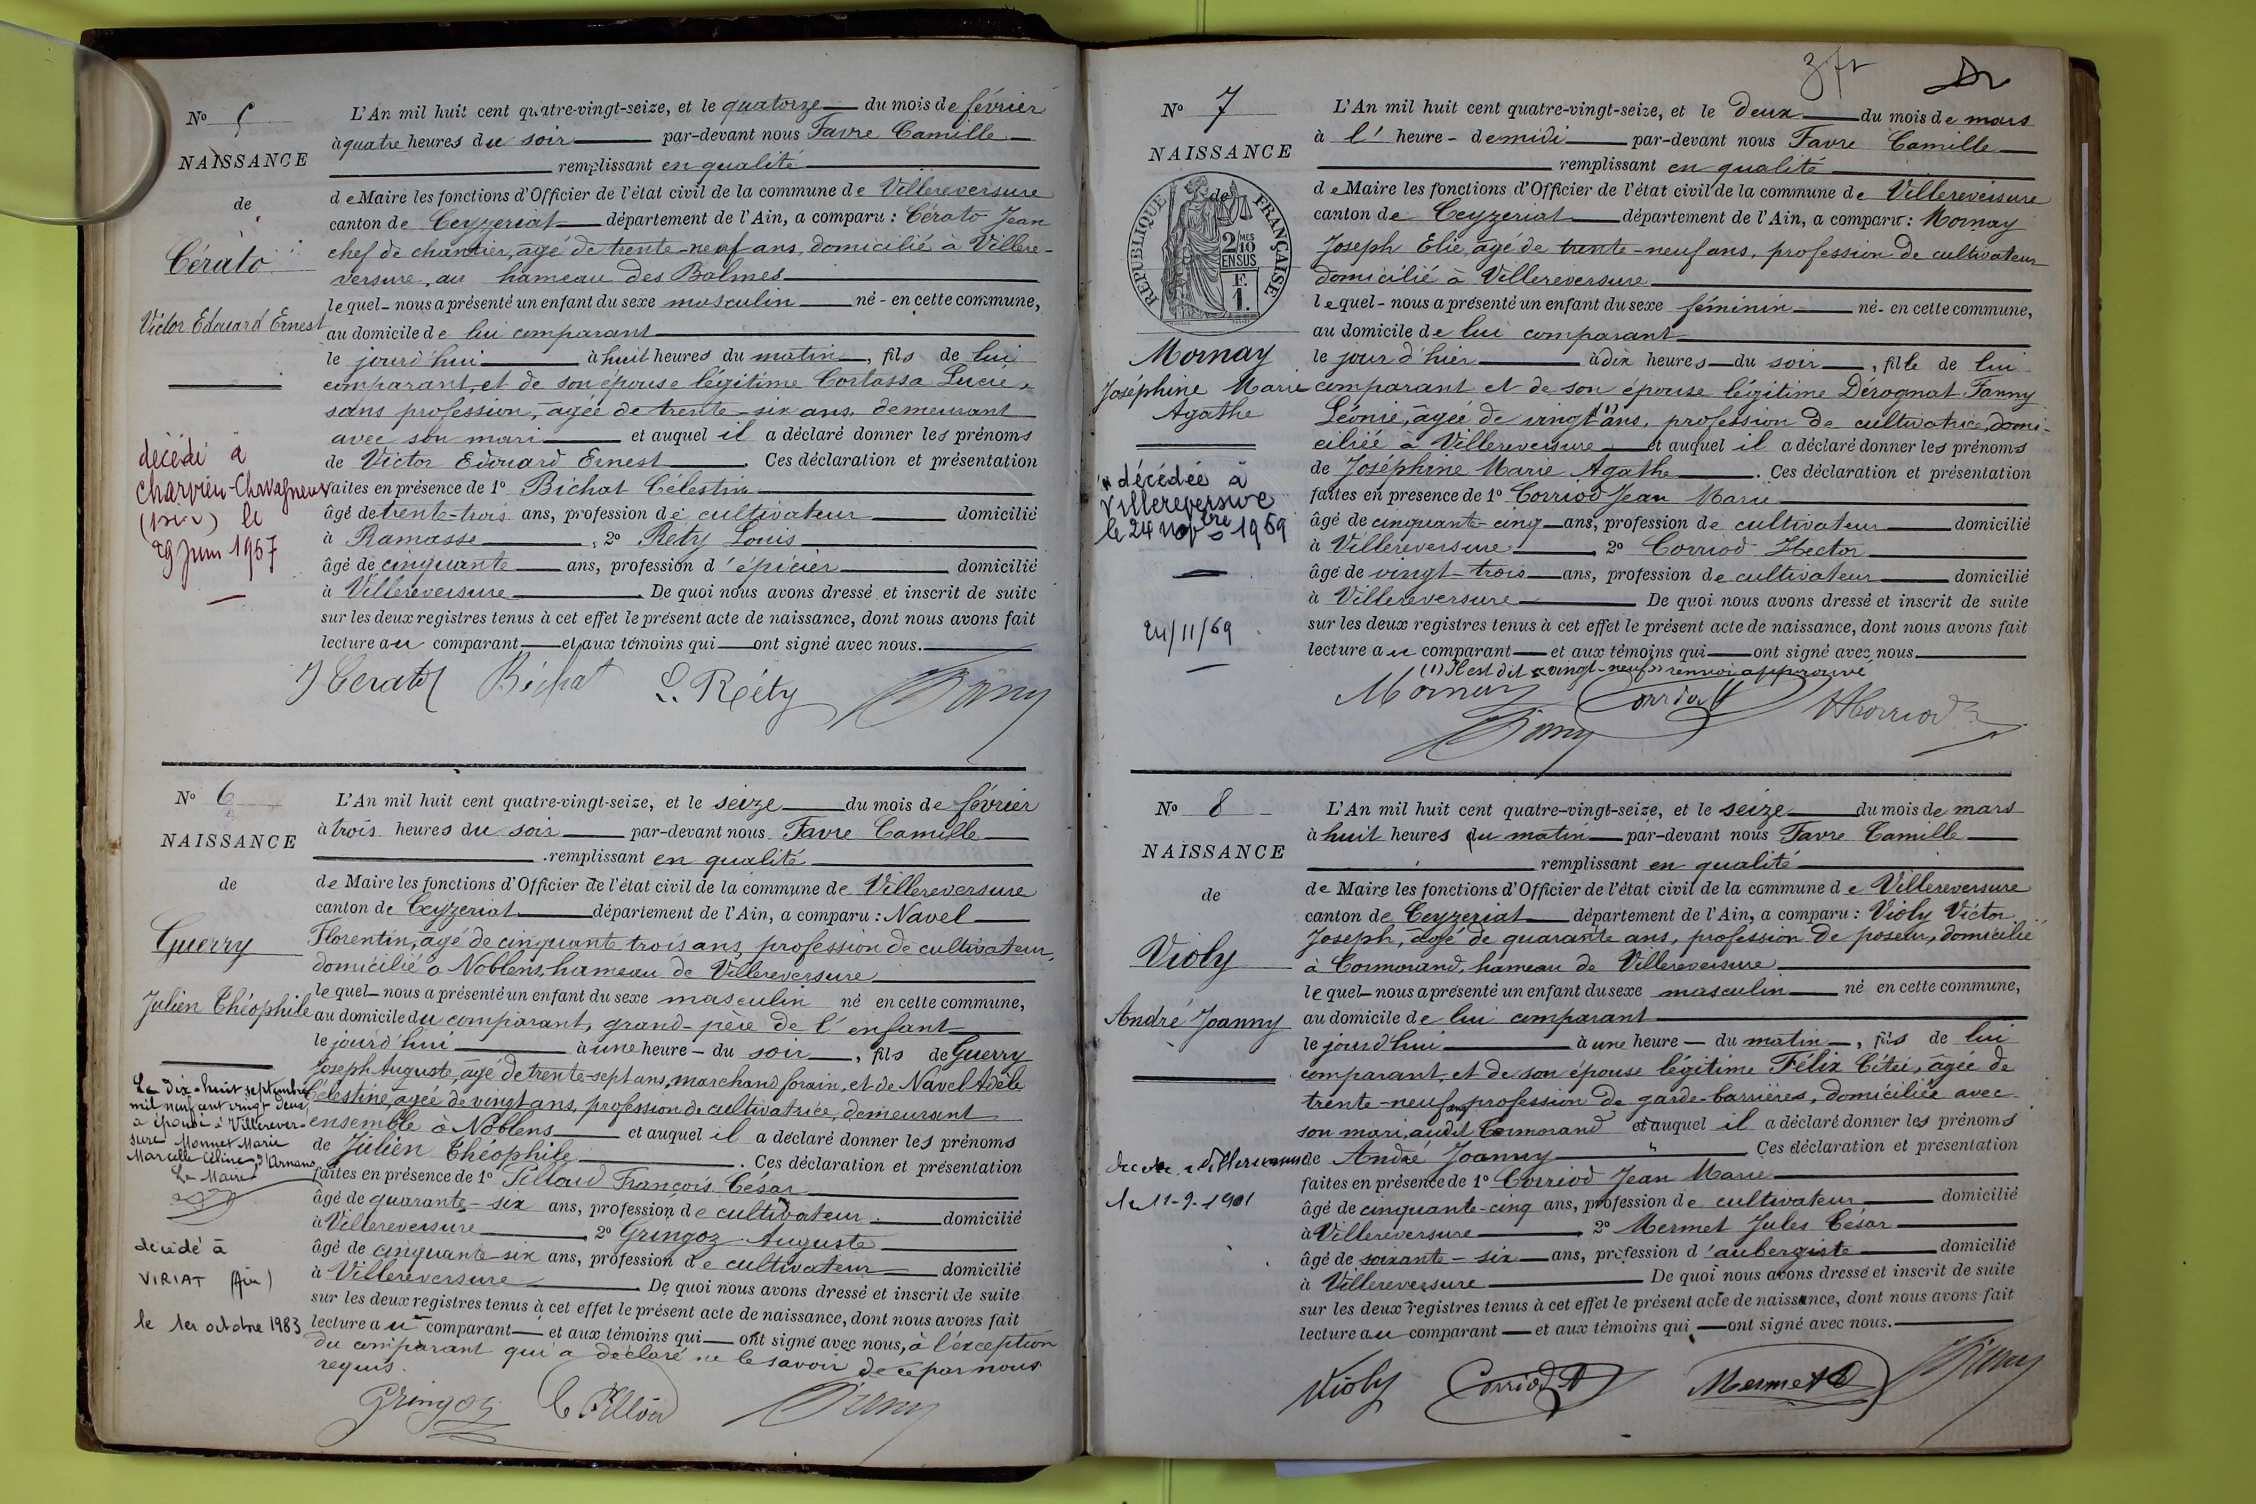 N° 5
NAISSANCE
de
Cérato
Victor Edouard Ernest
décédé à
Charvieu-Chavagneux
le
29 Juin 1967
L'An mil huit cent quatre-vingt-seize, et le quatorze du mois de février
à quatre heures du soir par-devant nous Favre Camille
remplissant en qualité
de Maire les fonctions d'Officier de l'état civil de la commune de Villereversure
canton de Ceyzeriat département de l'Ain, a comparu : Cérato Jean
chef de chantier, âgé de trente-neuf ans, domicilié à Villere-
versure, au hameau des Balmes
lequel nous a présenté un enfant du sexe masculin né en cette commune,
au domicile de lui comparant
le jourd'hui à huit heures du matin, fils de lui
comparant, et de son épouse légitime Cortassa Lucie
sans profession, âgée de trente-six ans, demeurant
avec son mari et auquel il a déclaré donner les prénoms
de Victor Edouard Ernest. Ces déclaration et présentation
faites en présence de 1° Bichat Célestin
âgé de trente-trois ans, profession de cultivateur domicilié
à Ramasse, 2° Réty Louis
âgé de cinquante ans, profession d'épicier domicilié
à Villereversure. De quoi nous avons dressé et inscrit de suite
sur les deux registres tenus à cet effet le présent acte de naissance, dont nous avons fait
lecture au comparant et aux témoins qui ont signé avec nous.
J Cerato Béchat L. Réty
N° 6
NAISSANCE
de
Guerry
Julien Théophile
Le dix-huit septembre
mil neuf cent vingt deux
a épousé à Villerever-
sure Monnet Marie
Marcelle Céline
Le Maire
décédé à
VIRIAT (Ain)
le 1er octobre 1983
L'An mil huit cent quatre-vingt-seize, et le seize du mois de février
à trois heures du soir par-devant nous Favre Camille
remplissant en qualité
de Maire les fonctions d'Officier de l'état civil de la commune de Villereversure
canton de Ceyzeriat département de l'Ain, a comparu : Navel
Florentin, âgé de cinquante trois ans, profession de cultivateur,
domicilié à Noblens, hameau de Villereversure
lequel nous a présenté un enfant du sexe masculin né en cette commune,
au domicile du comparant, grand-père de l'enfant
le jourd'hui à une heure du soir, fils de Guerry
Joseph Auguste, âgé de trente-sept ans, marchand forain, et de Navel Adèle
Célestine, âgée de vingt ans, profession de cultivatrice, demeurant
ensemble à Noblens et auquel il a déclaré donner les prénoms
de Julien Théophile. Ces déclaration et présentation
faites en présence de 1° Pilloud François César
âgé de quarante-six ans, profession de cultivateur domicilié
à Villereversure, 2° Gringoz Auguste
âgé de cinquante-six ans, profession de cultivateur domicilié
à Villereversure. De quoi nous avons dressé et inscrit de suite
sur les deux registres tenus à cet effet le présent acte de naissance, dont nous avons fait
lecture au comparant et aux témoins qui ont signé avec nous, à l'exception
du comparant qui a déclaré ne le savoir de ce par nous
requis.
Gringoz
37
N° 7
NAISSANCE
de
RÉPUBLIQUE FRANÇAISE
2/10 MES
EN SUS
F.
1.
Mornay
Joséphine Marie
Agathe
décédée à
Villereversure
le 24 novbre 1969
24/11/69
L'An mil huit cent quatre-vingt-seize, et le deux du mois de mars
à l' heure de midi par-devant nous Favre Camille
remplissant en qualité
de Maire les fonctions d'Officier de l'état civil de la commune de Villereversure
canton de Ceyzeriat département de l'Ain, a comparu : Mornay
Joseph Elie, âgé de trente-neuf ans, profession de cultivateur
domicilié à Villereversure
lequel nous a présenté un enfant du sexe féminin né en cette commune,
au domicile de lui comparant
le jour d'hier à dix heures du soir, fille de lui
comparant et de son épouse légitime Dérognat Fanny
Léonie, âgée de vingt (1) ans, profession de cultivatrice, domi-
ciliée à Villereversure et auquel il a déclaré donner les prénoms
de Joséphine Marie Agathe. Ces déclaration et présentation
faites en présence de 1° Corriod Jean Marie
âgé de cinquante-cinq ans, profession de cultivateur domicilié
à Villereversure, 2° Corriod Hector
âgé de vingt-trois ans, profession de cultivateur domicilié
à Villereversure. De quoi nous avons dressé et inscrit de suite
sur les deux registres tenus à cet effet le présent acte de naissance, dont nous avons fait
lecture au comparant et aux témoins qui ont signé avec nous
(1) Il est dit « vingt-neuf » renvoi approuvé
Mornay Corriod H Corriod
N° 8
NAISSANCE
de
Violy
André Joanny
le 11-9-1901
L'An mil huit cent quatre-vingt-seize, et le seize du mois de mars
à huit heures du matin par-devant nous Favre Camille
remplissant en qualité
de Maire les fonctions d'Officier de l'état civil de la commune de Villereversure
canton de Ceyzeriat département de l'Ain, a comparu : Violy Victor
Joseph, âgé de quarante ans, profession de poseur, domicilié
à Cormorand, hameau de Villereversure
lequel nous a présenté un enfant du sexe masculin né en cette commune,
au domicile de lui comparant
le jourd'hui à une heure du matin, fils de lui
comparant, et de son épouse légitime Félix Citée, âgée de
trente-neuf ans, profession de garde-barrières, domiciliée avec
son mari, audit Cormorand et auquel il a déclaré donner les prénoms
de André Joanny Ces déclaration et présentation
faites en présence de 1° Corriod Jean Marie
âgé de cinquante-cinq ans, profession de cultivateur domicilié
à Villereversure, 2° Mermet Jules César
âgé de soixante-six ans, profession d'aubergiste domicilié
à Villereversure De quoi nous avons dressé et inscrit de suite
sur les deux registres tenus à cet effet le présent acte de naissance, dont nous avons fait
lecture au comparant et aux témoins qui ont signé avec nous.
Violy Corriod Mermet